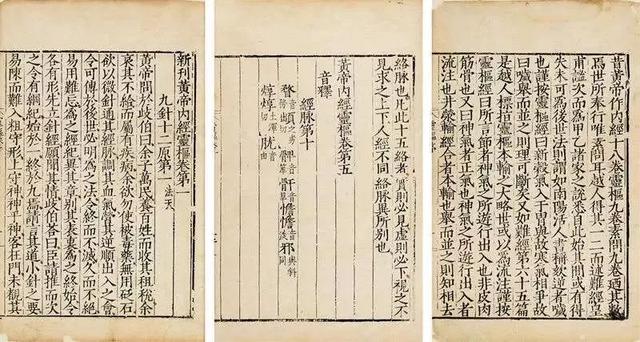 昔黃帝作內經十八卷靈樞九卷素問九卷迺其數
焉世所奉行唯素問耳越人得其一二而述難經皇
甫謐次而爲甲乙諸家之說悉自此始其間或有得
失未可爲後世法則謂如南陽活人書稱欬逆者噦
也謹按靈樞經曰新穀氣入于胃與故寒氣相爭故
曰噦舉而並之則理可斷矣又如難經第六十五篇
是越人標指靈樞本輸之大略世或以爲流注謹按
靈樞經曰所言節者神氣之所遊行出入也非皮肉
筋骨也又曰神氣者正氣也神氣之所遊行出入者
流注也井滎輸經合者本輸也舉而並之則知相去
絡脉也凡此十五絡者實則必見虛則必下視之不
見求之上下人經不同絡脉異所別也
黃帝內經靈樞卷第五
音釋
經脉第十
新刊黃帝內經靈樞卷第一
九針十二原第一 法天
黃帝問於歧伯曰余子萬民養百姓而收其租稅余
哀其不給而屬有疾病余欲勿使被毒藥無用砭石
欲以微針通其經脉調其血氣營其逆順出入之會
令可傳於後世必明爲之法令終而不滅久而不絕
易用難忘爲之經紀異其章別其表裏爲之終始令
各有形先立針經願聞其情歧伯荅曰臣請推而次
之令有綱紀始於一終於九焉請言其道小針之要
易陳而難入粗守形上守神神乎神客在門未覩其